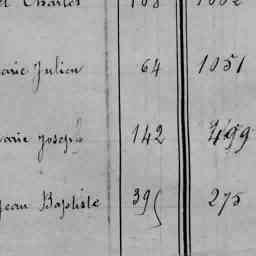 Charles 108 1032
arie Julien 64 1051
arie Joseph 142 499
Jean Baptiste 39 275